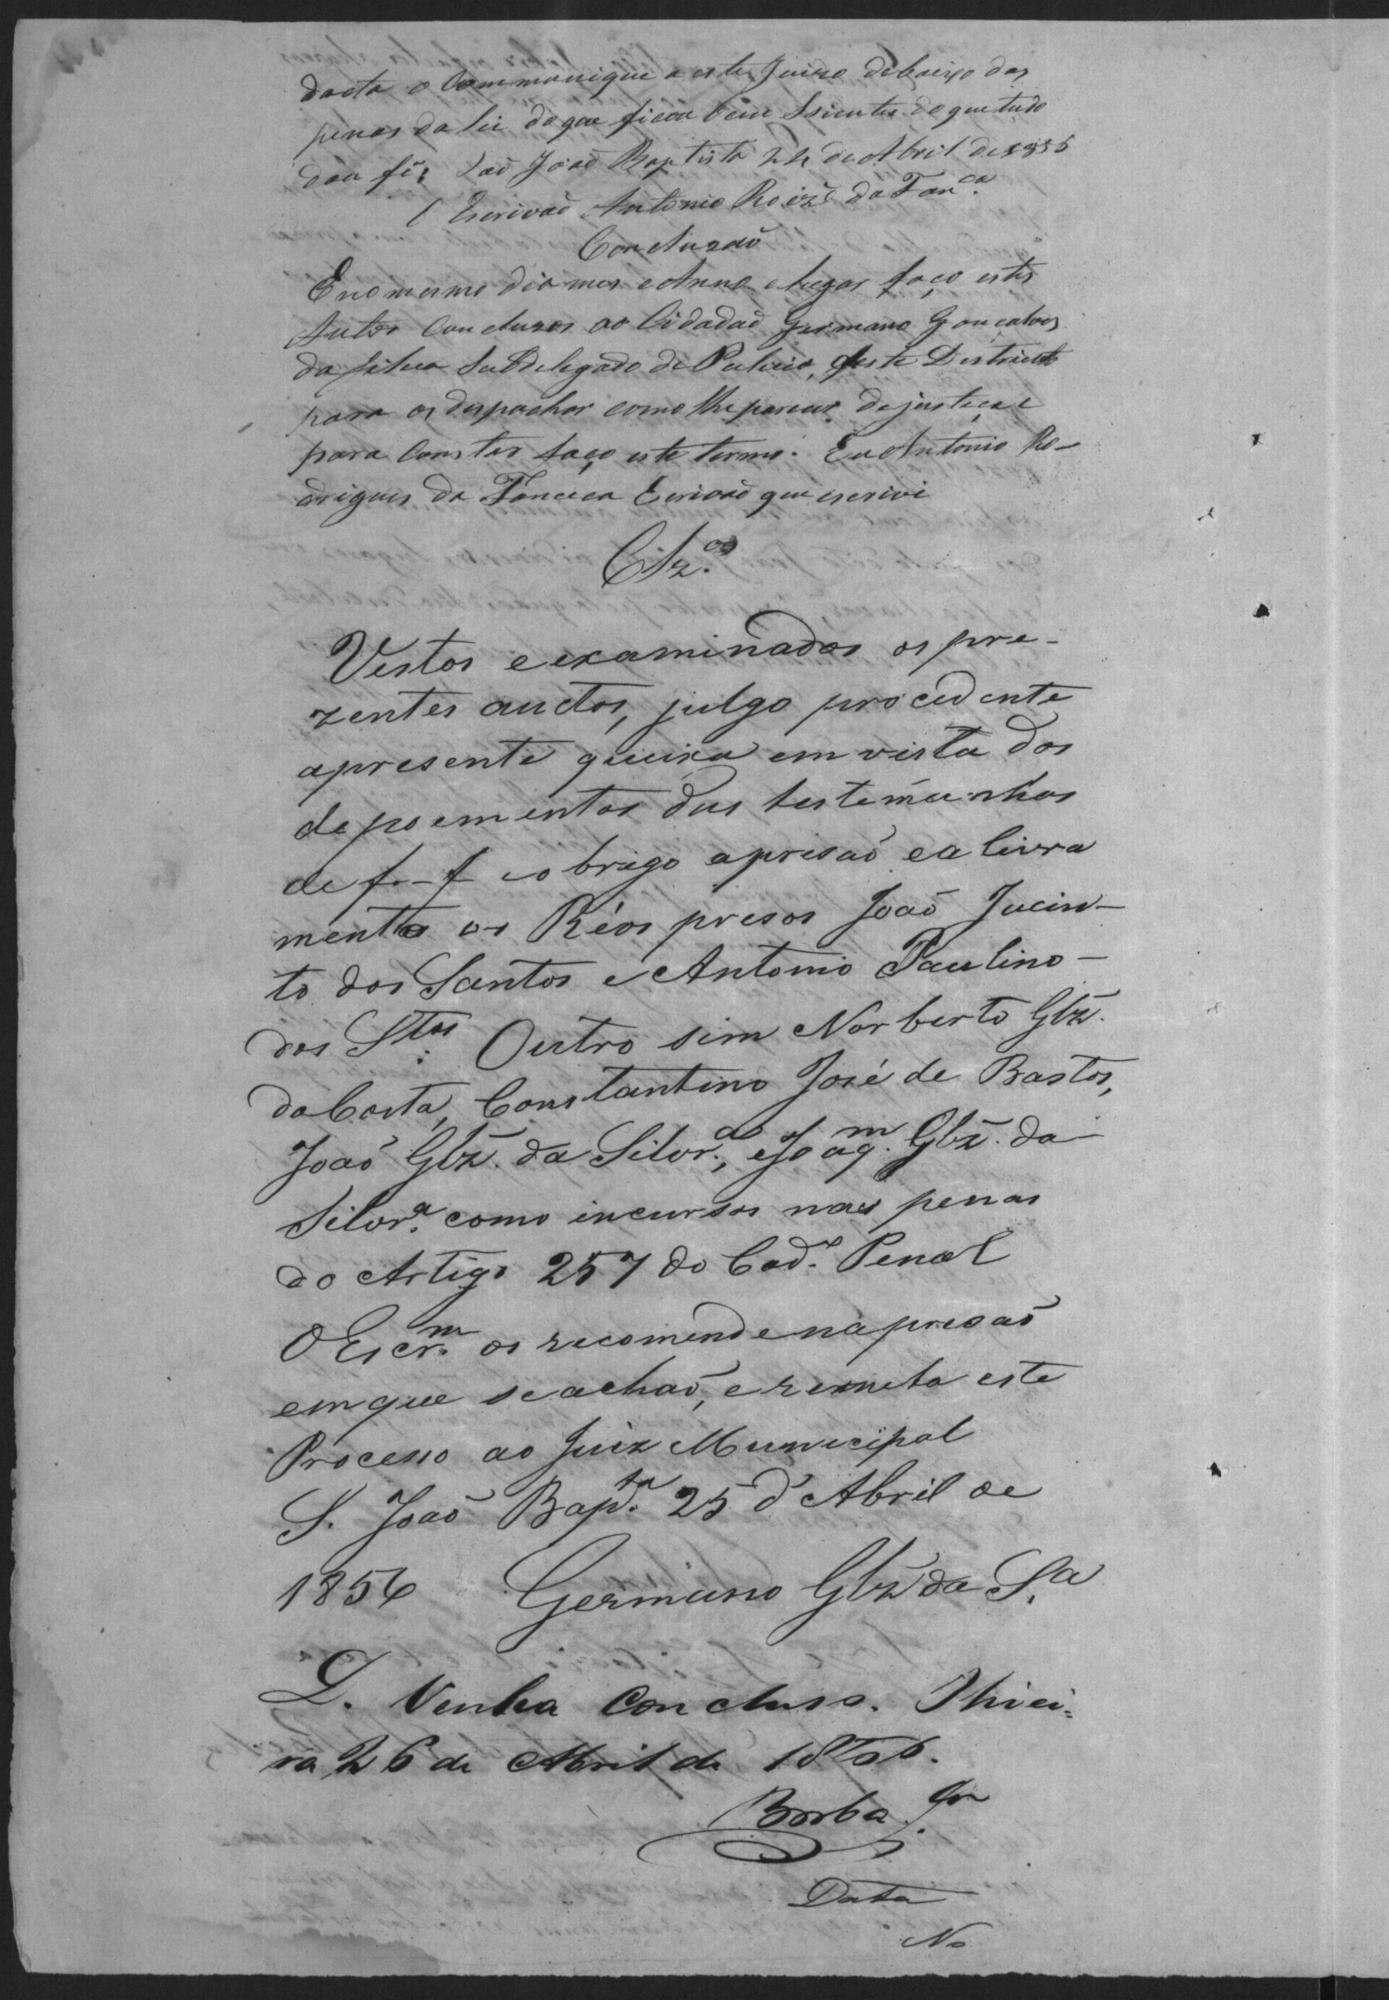 dacta o Communique a este Juizo debaixo das
penas da lei do que ficou bem Scientes do que tudo
dou fé, São João Baptista 24 de Abril de 1856
O Escrivaõ Antonio Roizˢ da Fonᶜᵃ
Concluzaõ
E no mesmo dia mes e Anno e lugar faço estes
Autos Concluzos ao Cidadaõ Germano Gonçalves
da Silva Subdelegado de Policia, deste Districto
para os despachar como lhe parecer de justiça e
para Constar faço este termo. Eu Antonio Ro-
drigues da Fonceca Escrivaõ que escrivi
Clzᵒˢ
Vistos e examinados os pre-
zentes auctos, julgo procedente
apresente queixa em vista dos
depoementos das testemunhas
de f - f e obrigo aprisaõ e a livra
mento os Réos presos Joaõ Jacin-
to dos Santos e Antonio Paulino
dos Sᵗᵒˢ Outro sim Norberto Glz̃.
da Costa, Constantino José de Bastos,
Joaõ Glz̃. da Silvrᵃ, e Joaqᵐ. Glz̃. da
Silvrᵃ. como incursos nas penas
do Artigo 257 do Codᵒ. Penal
O Escrᵐ. os recomende na prisaõ
em que se achaõ, e remeta este
Processo ao Juiz Municipal
S. Joaõ Bapᵗᵃ. 25 d'Abril de
1856 Germano Glz̃ da Sᵃ
D. Venha Concluso.
ra 26 de Abril de 1856.
Borba Jᵒʳ
Data
No